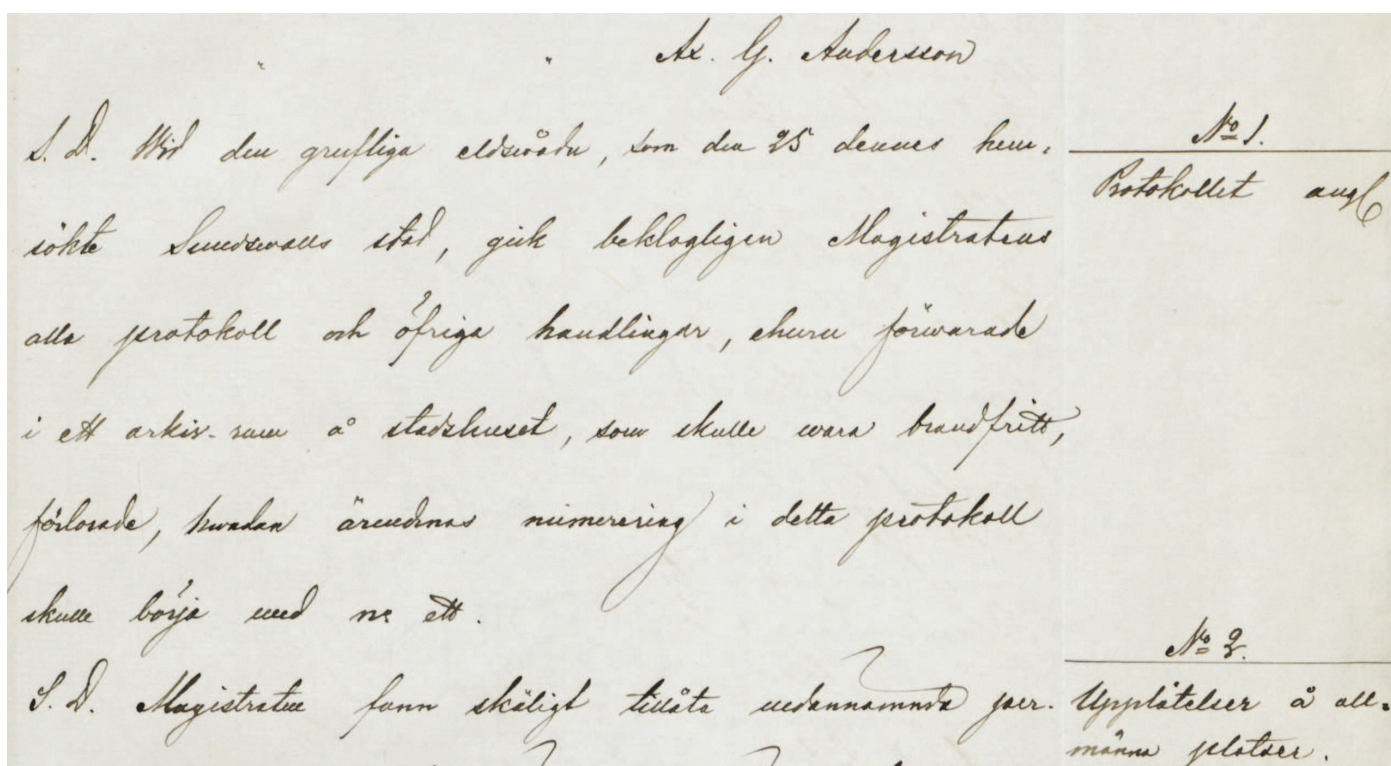 " " Ax. G. Andersson
S. D. Wid den grufliga eldswåda, som den 25 dennes hem-
sökte Sundswalls stad, gick beklagligen Magistratens
alla protokoll och öfriga handlingar, ehuru förwarade
i ett arkiv-rum å stadshuset, som skulle wara brandfritt,
förlorade, hwadan ärendenas numerering i detta protokoll
skulle börja med nr ett.
S. D. Magistraten fann skäligt tillåta nedannämnda per-
No 1.
Protokollet angl
No 2.
Upplåtelser å all-
männa platser.